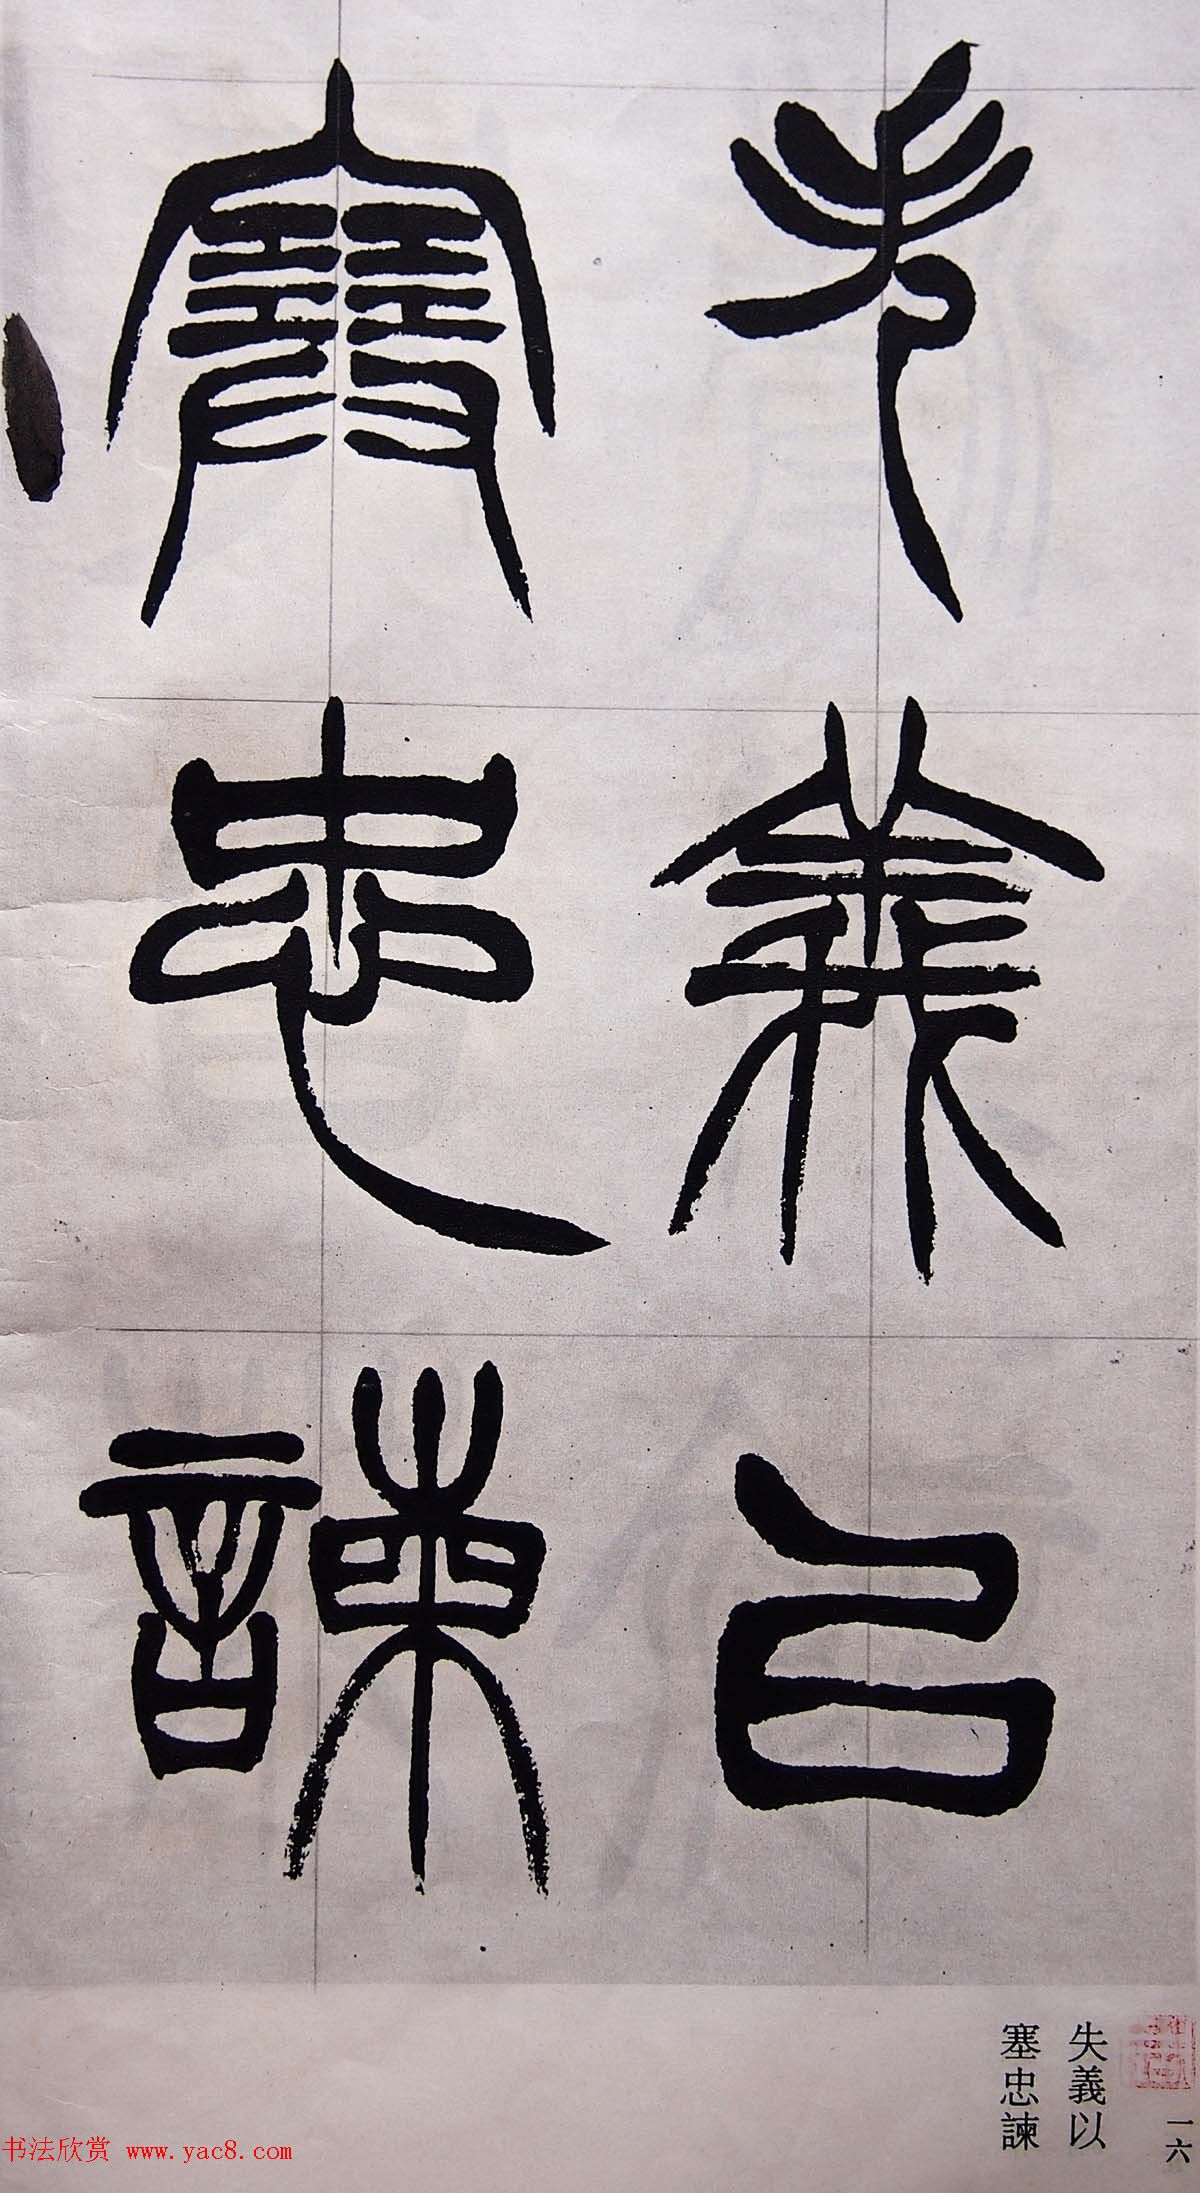 失義以
塞忠諫
失義以
塞忠諫
一六
书法欣赏 www.yac8.com